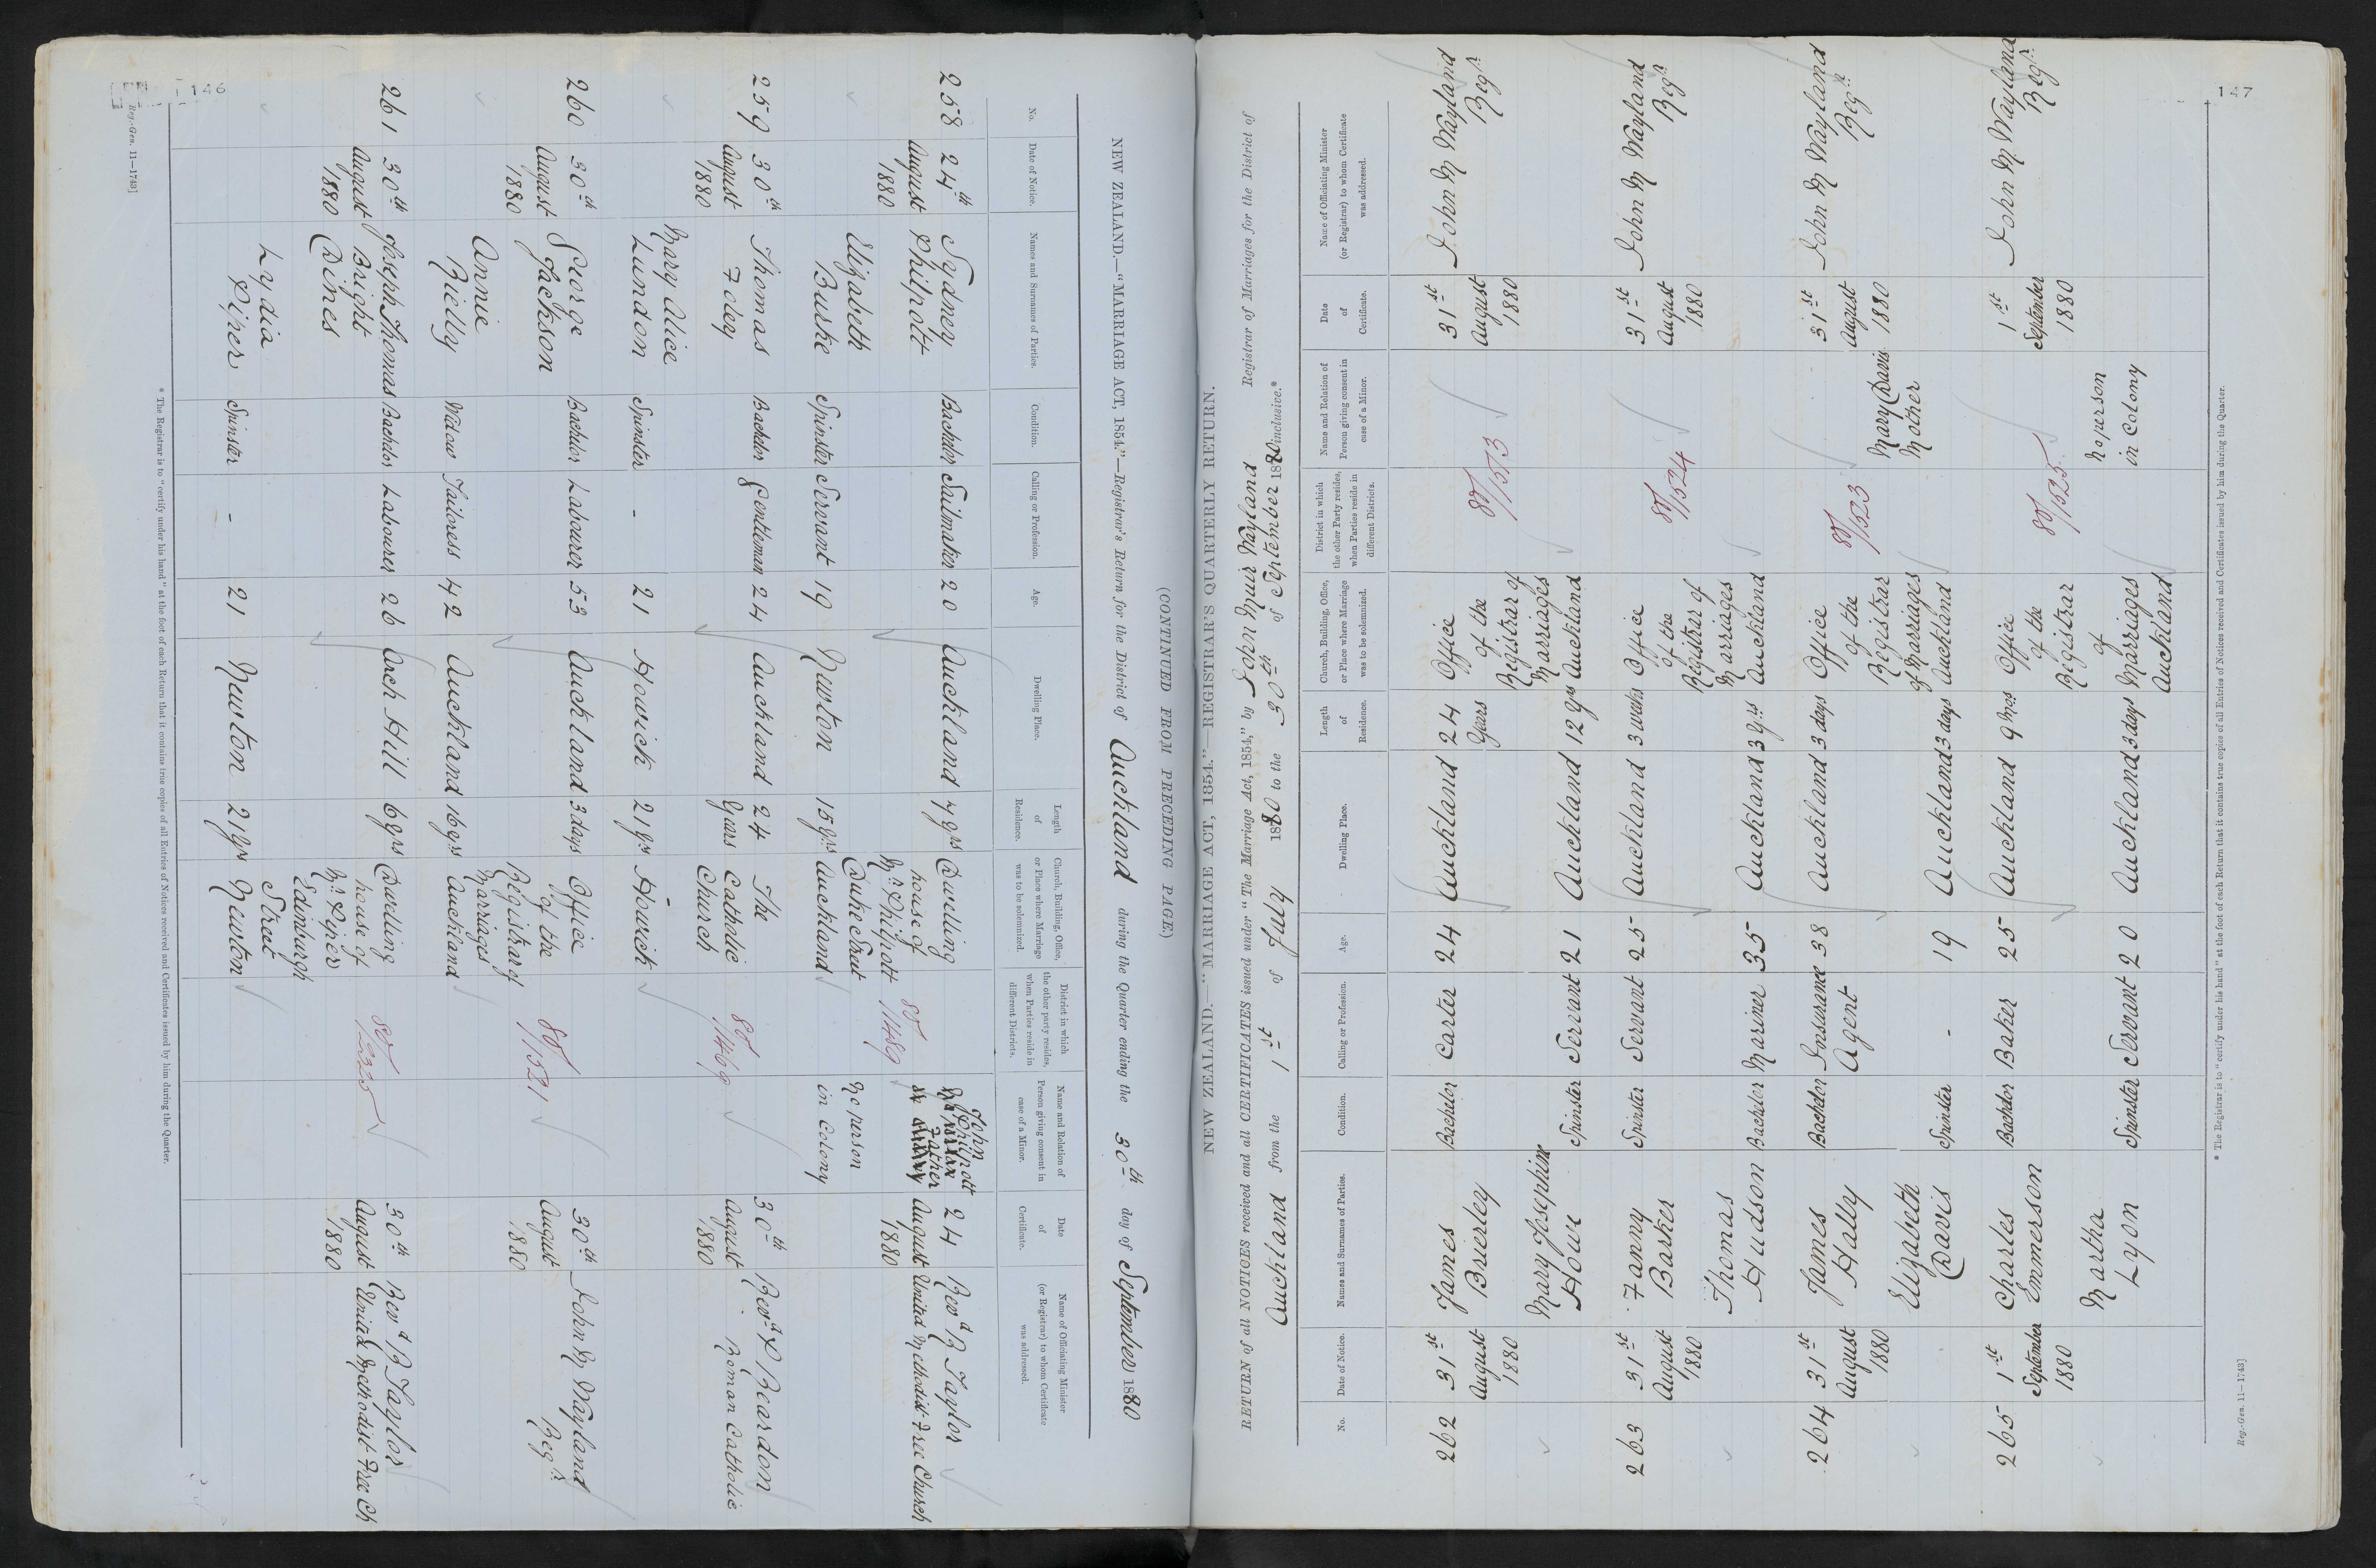 146
(CONTINUED FROM PRECEDING PAGE.)
NEW ZEALAND.—"MARRIAGE ACT, 1854."—Registrar's Return for the District of Auckland during the Quarter ending the 30th day of September 1880
No.
Date of Notice.
Names and Surnames of Parties.
Condition.
Calling or Profession.
Age.
Dwelling Place.
Length of Residence.
Church, Building, Office, or Place where Marriage was to be solemnized.
District in which the other party resides, when Parties reside in different Districts.
Name and Relation of Person giving consent in case of a Minor.
Date of Certificate.
Name of Officiating Minister (or Registrar) to whom Certificate was addressed.
258 24th August 1880
Sydney Philpott Bachelor Sailmaker 20 Auckland 7 yrs
Dwelling house of Mr Philpott Duke Street Auckland
80/1489
John Philpott Father
24 August 1880
Revd B Taylor United Methodist Free Church
Elizabeth Burke Spinster Servant 19 Newton 15 yrs
No person in Colony
259 30th August 1880
Thomas Foley Bachelor Gentleman 24 Auckland 24 Years
The Catholic Church Howick
80/1469
30th August 1880
Revd P Reardon Roman Catholic
Mary Alice Lundon Spinster - 21 Howick 21 yrs
260 30th August 1880
George Jackson Bachelor Labourer 53 Auckland 3 days
Office of the Registrar of Marriages Auckland
80/1521
30th August 1880
John M Wayland Regr
Annie Rielly Widow Tailoress 42 Auckland 16 yrs
261 30th August 1880
Joseph Thomas Bright Dines Bachelor Labourer 26 Arch Hill 6 yrs
Dwelling house of Mr Piper Edinburgh Street Newton
80/2325
30th August 1880
Revd B Taylor United Methodist Free Ch
Lydia Piper Spinster - 21 Newton 21 yrs
* The Registrar is to "certify under his hand" at the foot of each Return that it contains true copies of all Entries of Notices received and Certificates issued by him during the Quarter.
Reg.-Gen. 11—1743]
147
NEW ZEALAND.—"MARRIAGE ACT, 1854."—REGISTRAR'S QUARTERLY RETURN.
RETURN of all NOTICES received and all CERTIFICATES issued under "The Marriage Act, 1854," by John Muir Wayland Registrar of Marriages for the District of
Auckland from the 1st of July 1880 to the 30th of September 1880 inclusive.*
No.
Date of Notice.
Names and Surnames of Parties.
Condition.
Calling or Profession.
Age.
Dwelling Place.
Length of Residence.
Church, Building, Office, or Place where Marriage was to be solemnized.
District in which the other Party resides, when Parties reside in different Districts.
Name and Relation of Person giving consent in case of a Minor.
Date of Certificate.
Name of Officiating Minister (or Registrar) to whom Certificate was addressed.
262 31st August 1880
James Brierley Bachelor Carter 24 Auckland 24 Years
Office of the Registrar of Marriages Auckland
80/1573
31st August 1880
John M Wayland Regr
Mary Josephine Howe Spinster Servant 21 Auckland 12 yrs
263 31st August 1880
Fanny Barker Spinster Servant 25 Auckland 3 weeks
Office of the Registrar of Marriages Auckland
80/1524
31st August 1880
John M Wayland Regr
Thomas Hudson Bachelor Mariner 35 Auckland 3 yrs
264 31st August 1880
James Hally Bachelor Insurance Agent 38 Auckland 3 days
Office of the Registrar of Marriages Auckland
80/1523
31st August 1880
John M Wayland Regr
Elizabeth Davis Spinster - 19 Auckland 3 days
Mary Davis Mother
265 1st September 1880
Charles Emmerson Bachelor Baker 25 Auckland 9 mos
Office of the Registrar of Marriages Auckland
80/1525
1st September 1880
John M Wayland Regr
Martha Lyon Spinster Servant 20 Auckland 3 days
No person in Colony
* The Registrar is to "certify under his hand" at the foot of each Return that it contains true copies of all Entries of Notices received and Certificates issued by him during the Quarter.
Reg.-Gen. 11—1743]